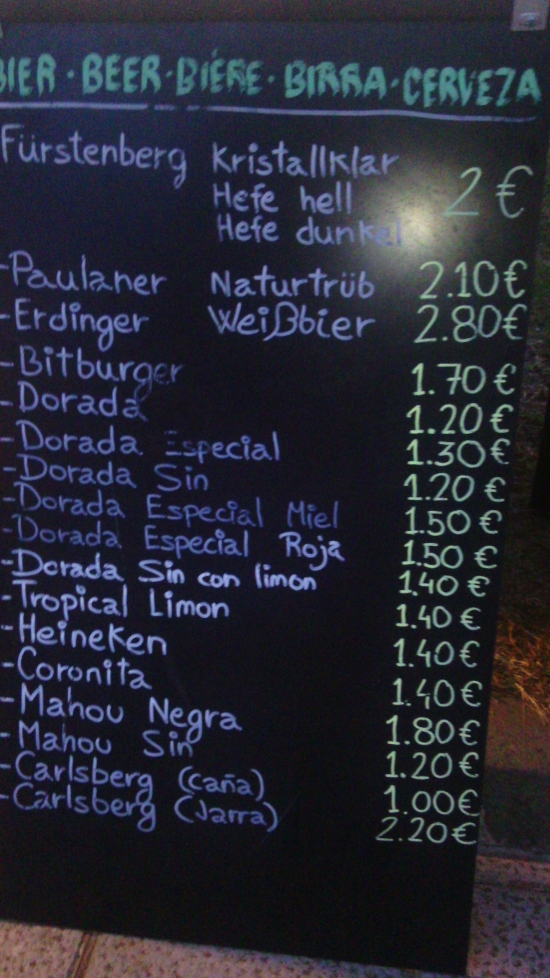 BIER · BEER · BIÈRE · BIRRA · CERVEZA
Fürstenberg Kristallklar
Hefe hell 2 €
Hefe dunkel
-Paulaner Naturtrüb 2.10€
-Erdinger Weißbier 2.80€
-Bitburger 1.70€
-Dorada 1.20€
-Dorada Especial 1.30€
-Dorada Sin 1.20€
-Dorada Especial Miel 1.50€
-Dorada Especial Roja 1.50€
-Dorada Sin con limon 1.40€
-Tropical Limon 1.40€
-Heineken 1.40€
-Coronita 1.40€
-Mahou Negra 1.80€
-Mahou Sin 1.20€
-Carlsberg (caña) 1.00€
-Carlsberg (Jarra) 2.20€